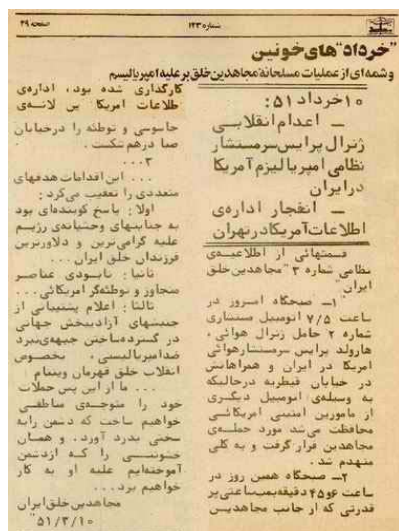 شماره ۱۲۳
صفحه ۲۹
"خرداد" های خونین
و شمه‌ای از عملیات مسلحانهٔ مجاهدین خلق بر علیه امپریالیسم
۱۰ خرداد ۵۱:
ــ اعدام انقلابی
ژنرال پرایس سرمستشار
نظامی امپریالیزم آمریکا
در ایران
ــ انفجار اداره‌ی
اطلاعات آمریکا در تهران
قسمتهائی از اطلاعیه‌ی
نظامی شماره ۳ "مجاهدین خلق
ایران"
"۱ــ صبحگاه امروز در
ساعت ۷/۵ اتومبیل مستشاری
شماره ۲ حامل ژنرال هوائی،
هارولد پرایس سرمستشار هوائی
امریکا در ایران و همراهانش
در خیابان قیطریه درحالیکه
به وسیله‌ی اتومبیل دیگری
از مامورین امنیتی امریکائی
محافظت می‌شد مورد حمله‌ی
مجاهدین قرار گرفت و به کلی
منهدم شد.
۲ــ صبحگاه همین روز در
ساعت ۶ و ۴۵ دقیقه بمب ساعتی پر
قدرتی که از جانب مجاهدین
کارگذاری شده بود، اداره‌ی
طلاعات امریکا این لانه‌ی
جاسوسی و توطئه را در خیابان
صبا درهم شکست.
۳...
... این اقدامات هدفهای
متعددی را تعقیب می‌کرد:
اولا: پاسخ کوبنده‌ای بود
به جنایتهای وحشیانه‌ی رژیم
علیه گرامی‌ترین و دلاورترین
فرزندان خلق ایران...
ثانیا: نابودی عناصر
متجاوز و توطئه‌گر امریکائی...
ثالثا: اعلام پشتیبانی از
جنبشهای آزادیبخش جهانی
در گسترده ساختن جبهه‌ی نبرد
ضد امپریالیستی، بخصوص
انقلاب خلق قهرمان ویتنام
... ما از این پس حملات
خود را متوجه‌ی مناطقی
خواهیم ساخت که دشمن را به
سختی بدرد آورد. و همان
خشونتی را که از دشمن
آموخته‌ایم علیه او به کار
خواهیم برد...
مجاهدین خلق ایران
۵۱/۳/۱۰"